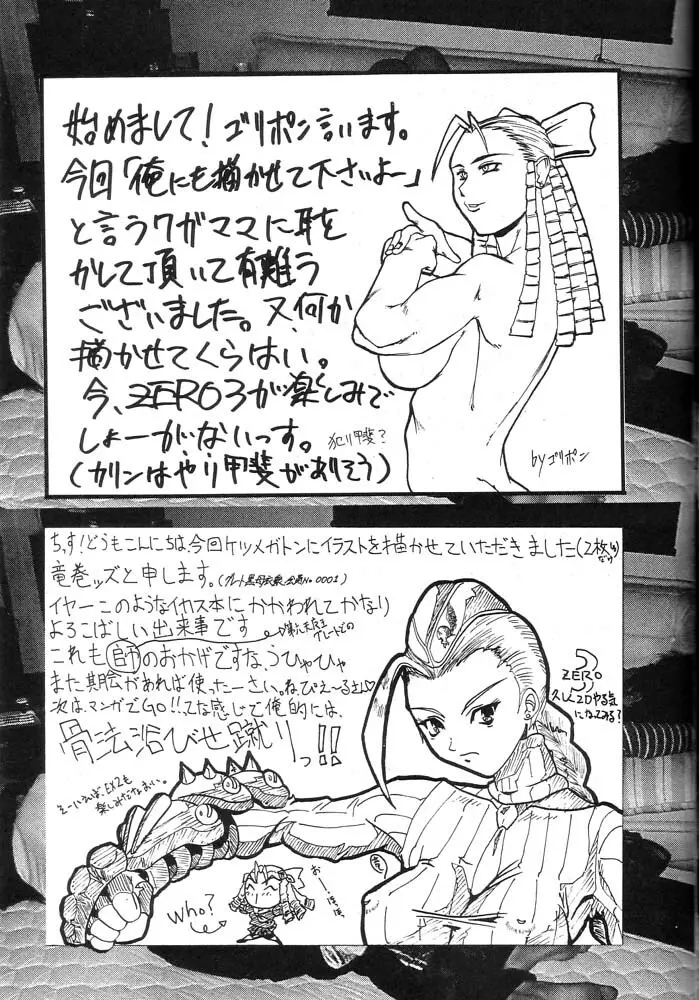 始めまして！ゴリポン言います。
今回「俺にも描かせて下さいよー」
と言うワガママに耳を
かして頂いて有難う
ございました。又、何か
描かせてくらはい。
今、ZERO3が楽しみで
しょーがないっす。
(カリンはやり甲斐がありそう)
犯り甲斐？
byゴリポン
ちっす！どうもこんにちは、今回ケツメガトンにイラストを描かせていただきました(2枚
竜巻ッズと申します。
イヤーこのようなイカス本にかかわれてかなり
よろこばしい出来事です
これも師のおかげですなうひゃひゃ
また期会があれば使ったーさい。ねぴえ〜るさん♡
次は、マンガでGO!!てな感じで俺的には、
骨法浴びせ蹴りっ!!
そーいえば、EX2も
楽しみだなおい。
ZERO3
久しく2Dやる気
になってみる？
Who?
おーっほほ